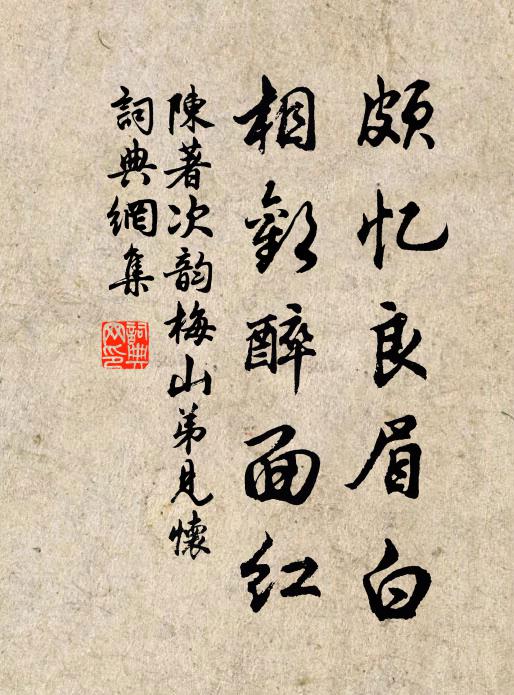 頗忆良眉白
相歡醉面红
陳著次韵梅山弟見懷
詞典網集
詞典網印